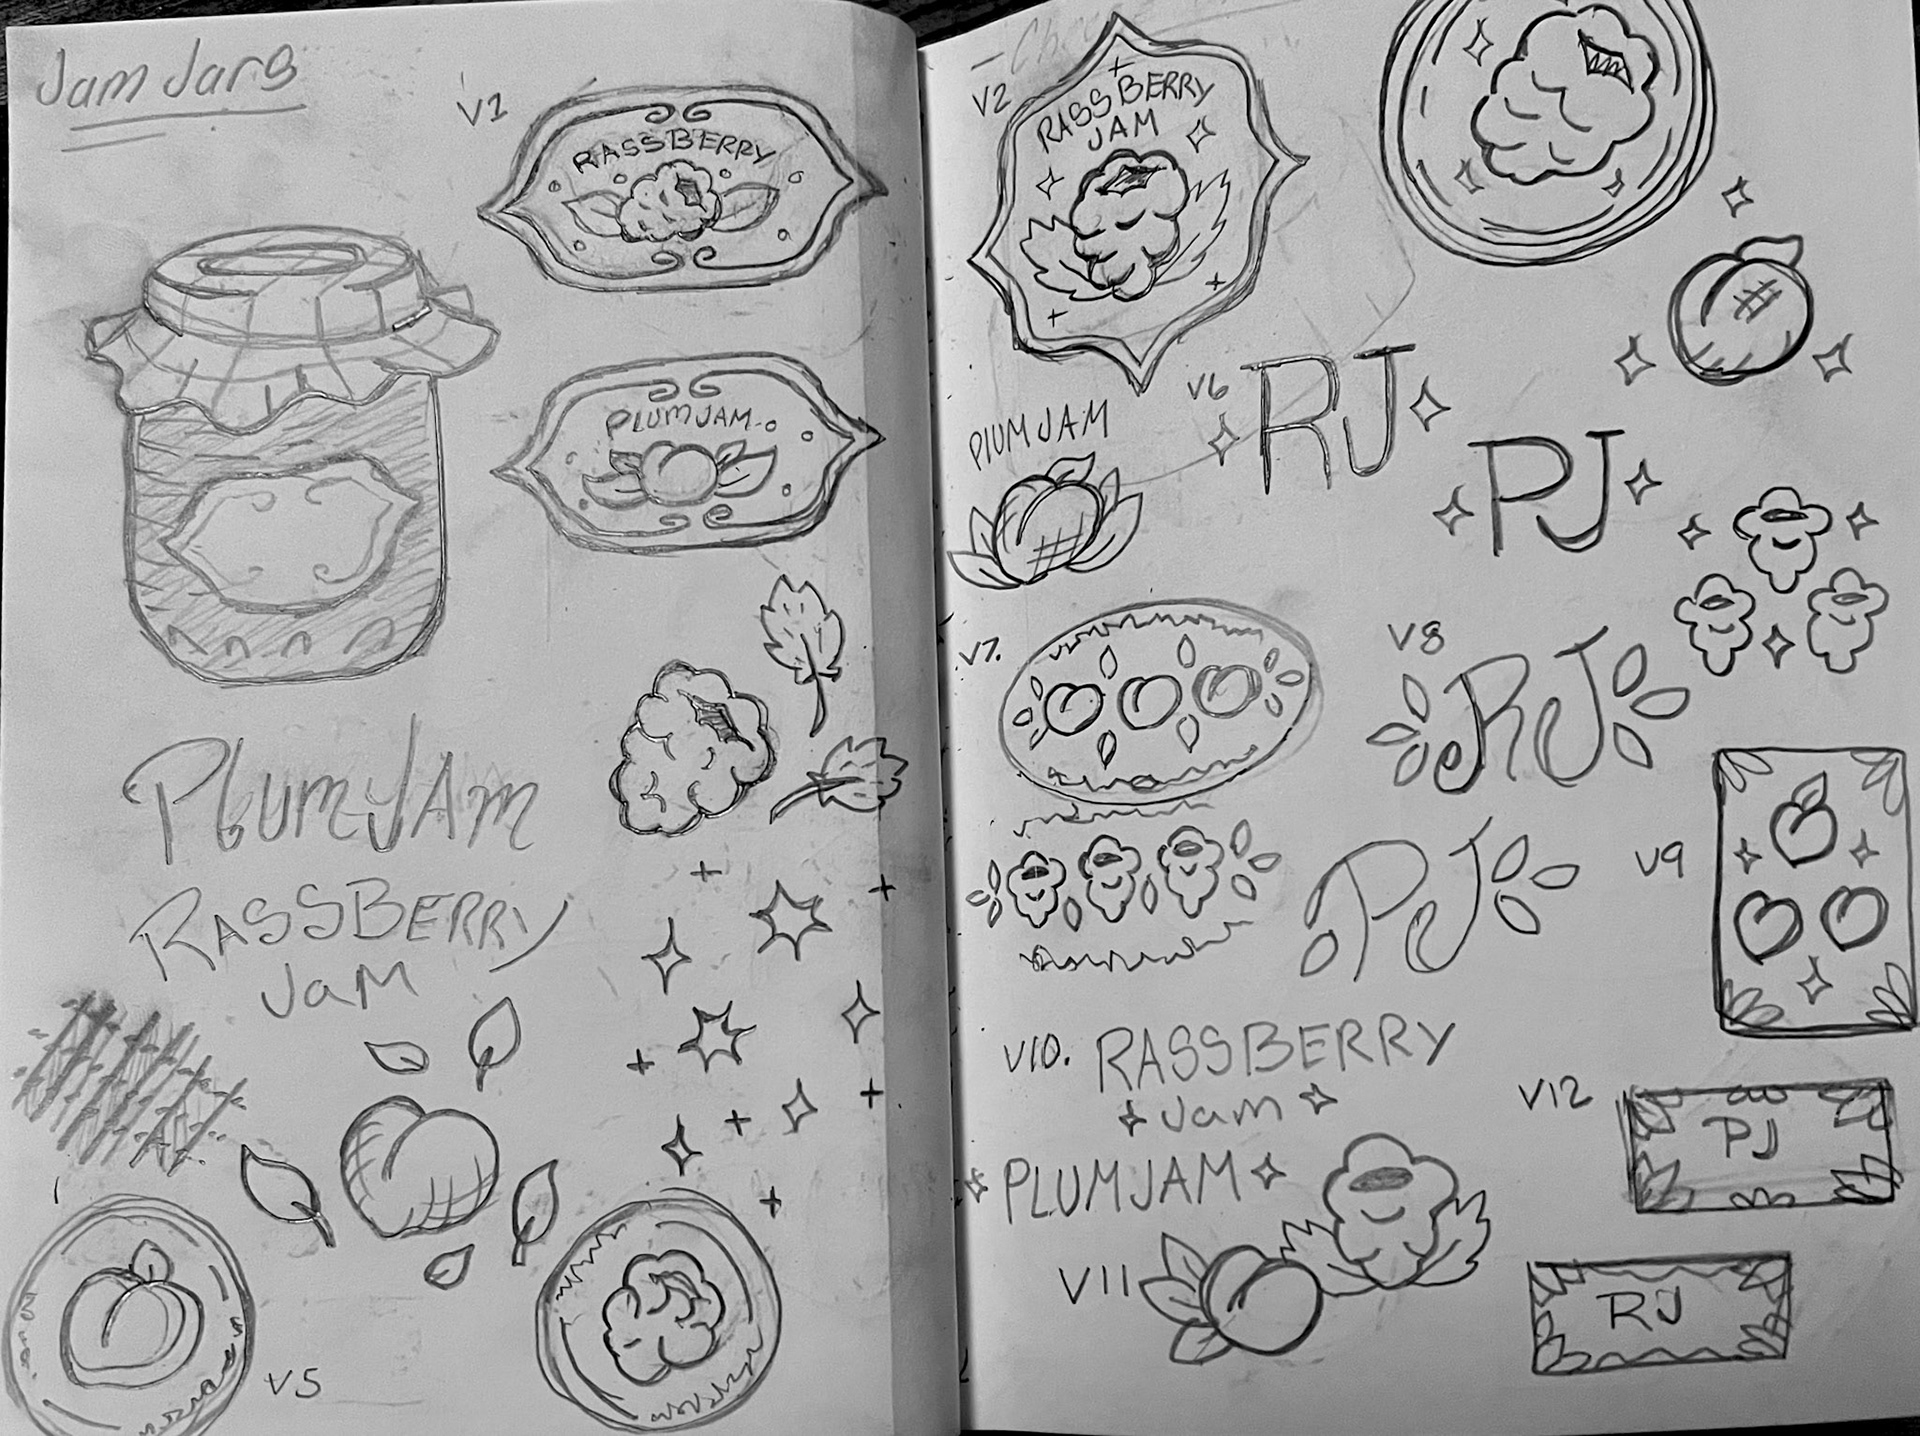 Jam Jars
V1
RASSBERRY
PLUM JAM
PLUM JAM
RASSBERRY
JaM
V5
V2
RASSBERRY
JAM
PlUM JAM
V6
RJ
PJ
V7.
V8
RJ
PJ
V9
V10.
RASSBERRY
Jam
PLUM JAM
V11
V12
PJ
RJ